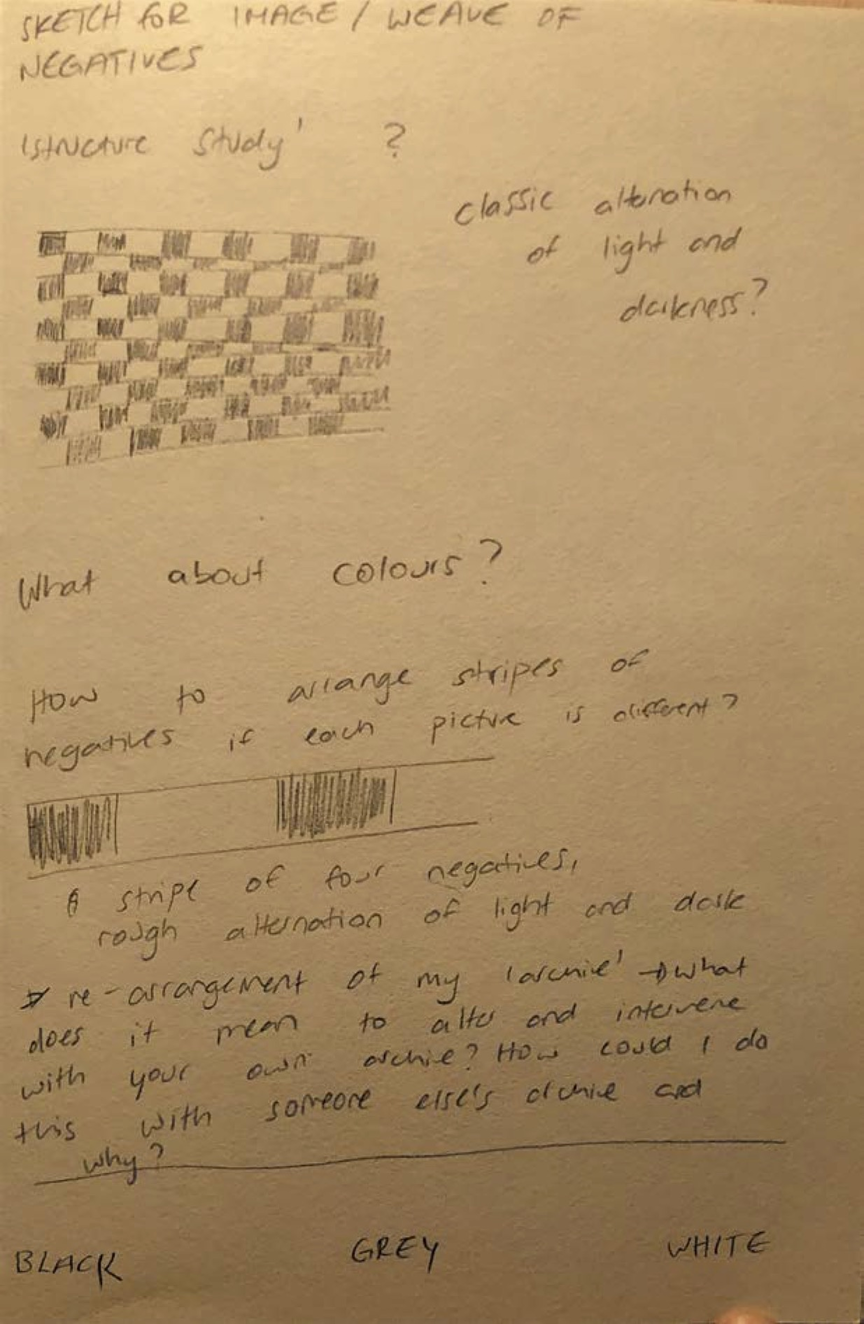 SKETCH FOR IMAGE / WEAVE OF
NEGATIVES
'structure study' ?
classic alternation
of light and
darkness?
What about colours?
How to arrange stripes of
negatives if each picture is different?
A stripe of four negatives,
rough alternation of light and dark
re-arrangement of my 'archive' → what
does it mean to alter and intervene
with your own archive? How could I do
this with someone else's archive and
why?
BLACK GREY WHITE